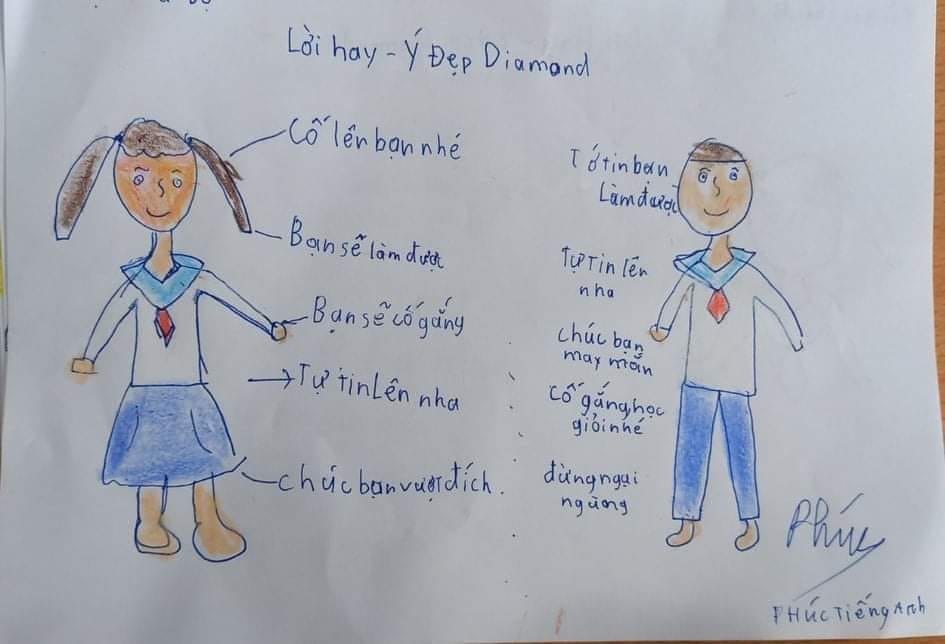 Lời hay - Ý Đẹp Diamond
Cố lên bạn nhé
Bạn sẽ làm được
Bạn sẽ cố gắng
Tự tin lên nha
chúc bạn vượt đích.
Tớ tin bạn
Làm được
Tự tin lên
nha
chúc bạn
may mắn
Cố gắng học
giỏi nhé
đừng ngại
ngùng
Phúc
PHÚC Tiếng Anh